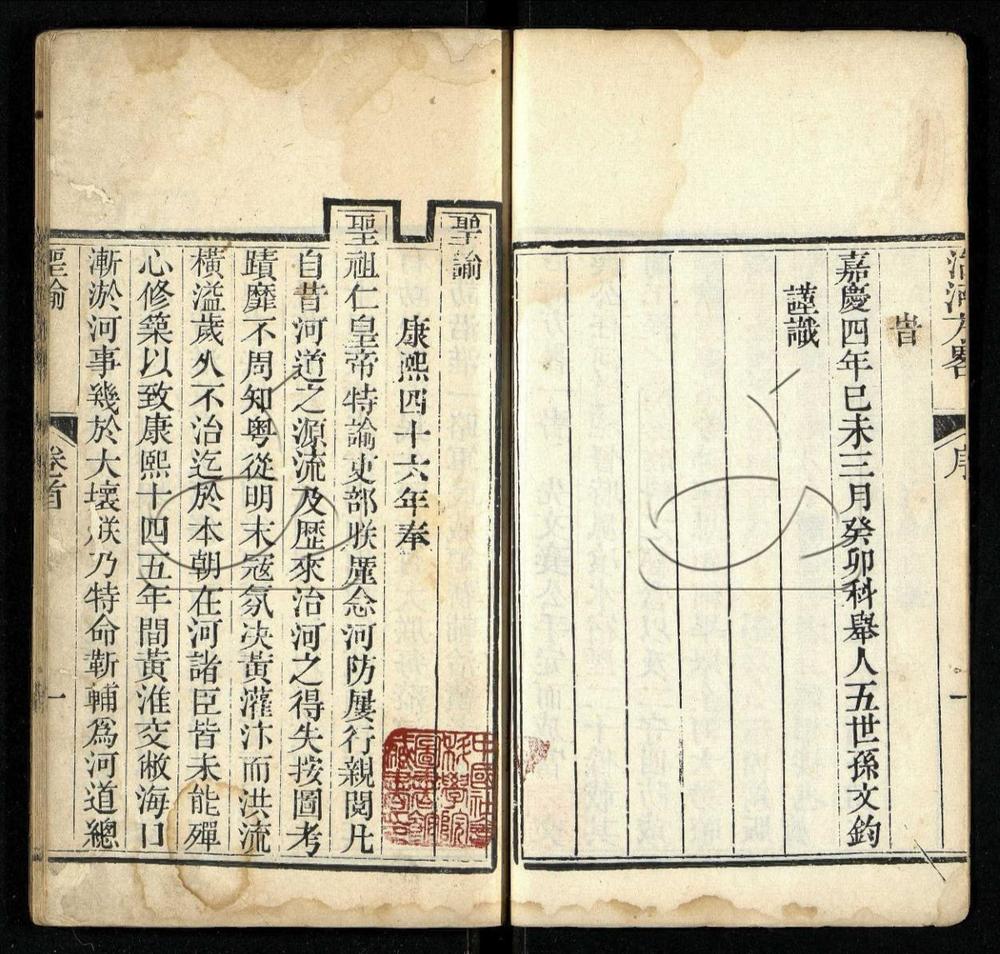 治河方畧
序
一
旹
嘉慶四年己未三月癸卯科舉人五世孫文鈞
謹識
聖諭
康熙四十六年奉
聖祖仁皇帝特諭吏部朕厪念河防屢行親閱凡
自昔河道之源流及歷來治河之得失按圖考
蹟靡不周知粤從明末寇氛決黃灌汴而洪流
橫溢歲久不治迄於本朝在河諸臣皆未能殫
心修築以致康熙十四五年間黃淮交敝海口
漸淤河事幾於大壞朕乃特命靳輔爲河道總
聖諭
卷首
一
中國社會
科學院
圖書館
藏書章